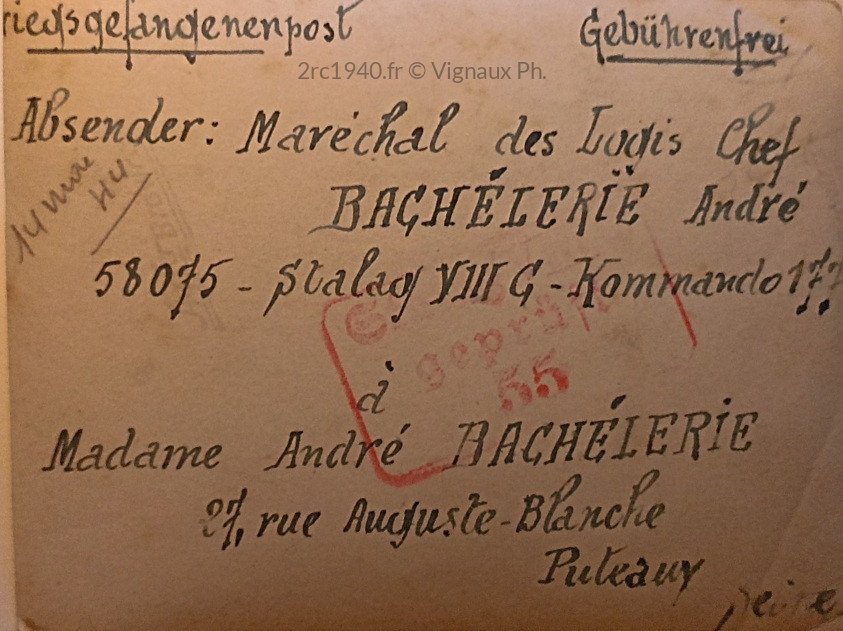 riegsgefangenenpost Gebührenfrei
2rc1940.fr © Vignaux Ph.
Absender: Maréchal des Logis Chef
14 mai 44
BACHÉLERIË André
58075 - Stalag VIII G - Kommando 177
geprüft
55
à
Madame André BACHÉLERIE
27, rue Auguste-Blanche
Puteaux